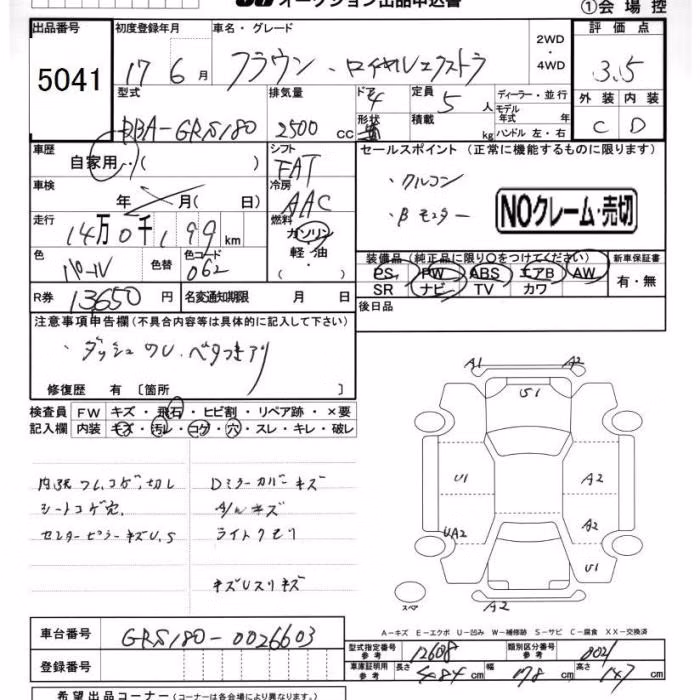 オークション出品申込書
①会場控
出品番号 初度登録年月 車名・グレード 2WD・4WD 評価点
5041 17 6月 クラウン・ロイヤルエクストラ 3.5
型式 排気量 ドア 定員 ディーラー・並行
RBA-GRS180 2500 cc 4 5 人 モデル年式 年 外装 内装
形状 積載 kg ハンドル 左・右 C D
車歴 シフト セールスポイント(正常に機能するものに限ります)
自家用・( ) FAT ・クルコン
車検 冷房 ・Bモニター
年 月( 日) AAC NOクレーム・売切
走行 燃料
14万0千199km ガソリン
色 色替 色コード 軽・油
パール 062 装備品(純正品に限り○をつけてください) 新車保証書
PS PW ABS エアB AW 有・無
R券 13650円 名変通知期限 月 日 SR ナビ TV カワ
注意事項申告欄(不具合内容等は具体的に記入して下さい) 後日品
・ダッシュワレ.ベタつきアリ
修復歴 有〔箇所 〕
検査員 FW キズ・飛石・ヒビ割・リペア跡・×要
記入欄 内装 キズ・汚レ・コゲ・穴・スレ・キレ・破レ
A1 A2
U1
内張ワレ.コゲ.切レ Dミラーカバーキズ
U1 A2
シートコゲ穴. A/Wキズ
センターピラーキズU.S ライトクモリ
UA2 A2
キズUスリキズ
U1
スペア A2
A-キズ E-エクボ U-凹み W-補修跡 S-サビ C-腐食 XX-交換済
車台番号 GRS180-0026603
型式指定番号 参考 12608 類別区分番号 参考 0021
登録番号 車庫証明用 参考 長さ 484cm 幅 178cm 高さ 147cm
希望出品コーナー(コーナーは各会場により異なります。)